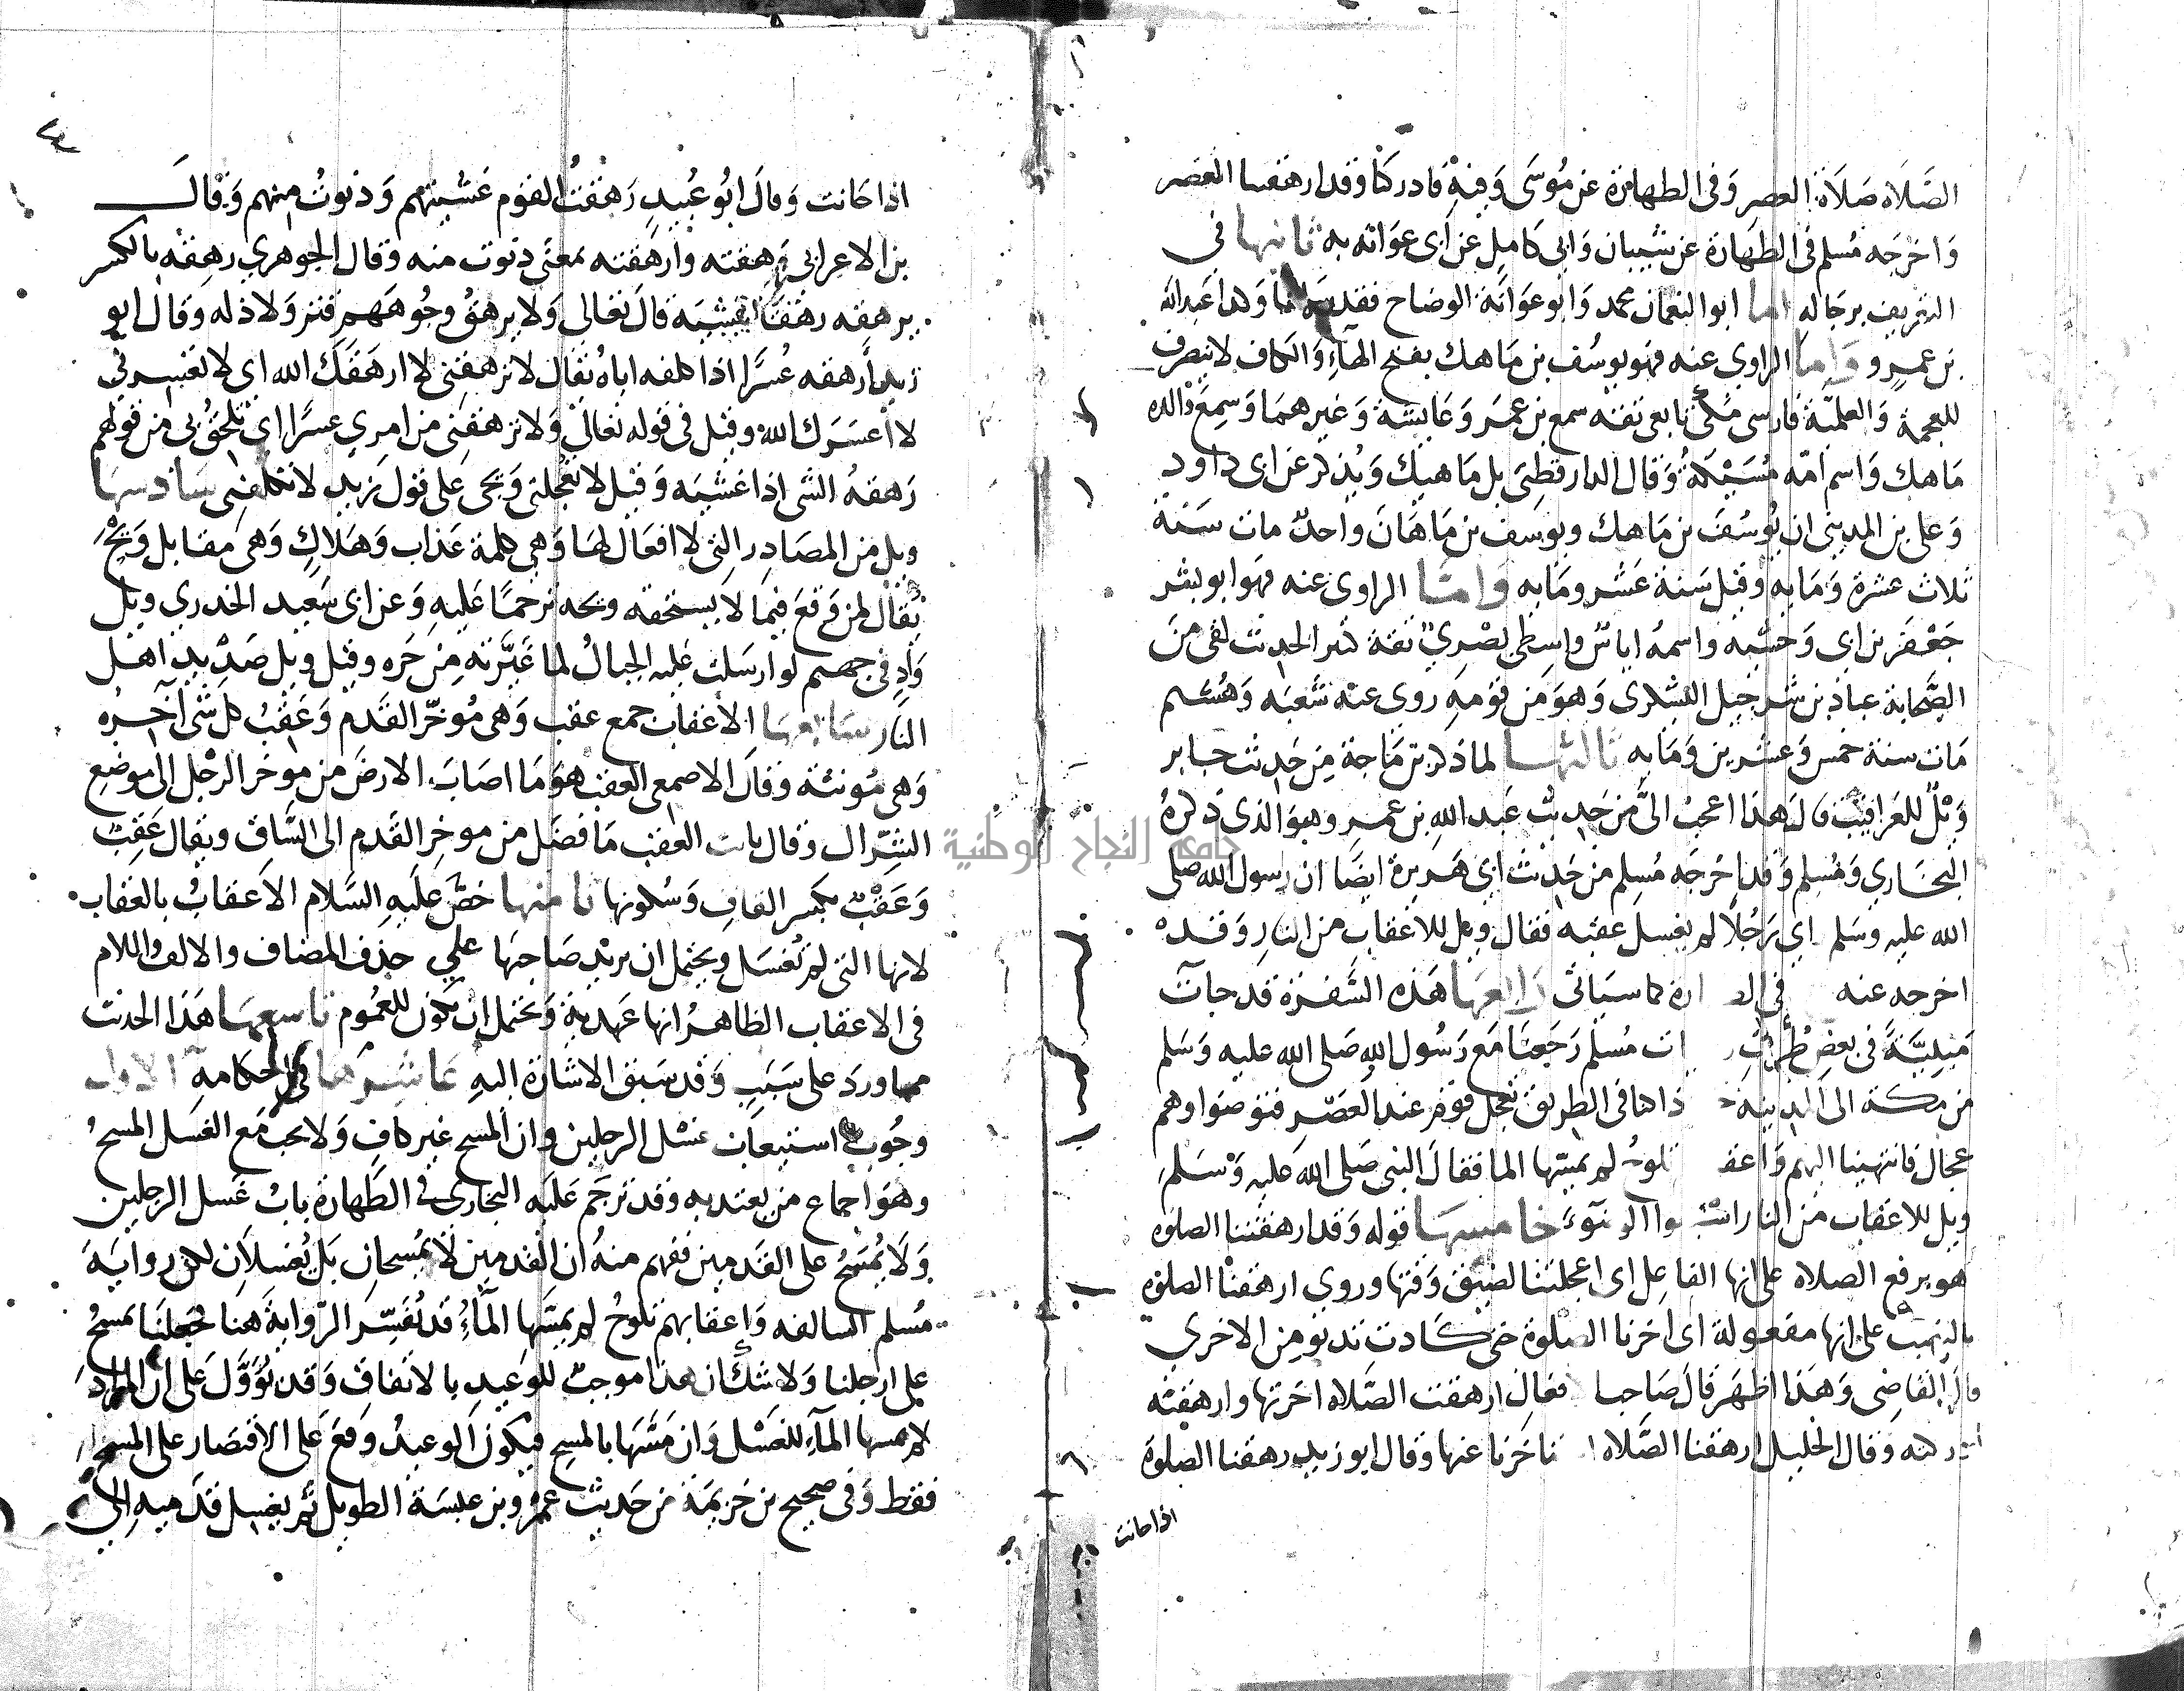 الصَّلَاة صَلَاة العصر وَفى الطهارة عن مُوسَى وَفيه فادركنا وقد ارهقنا العصر
وَاخرجه مُسلم فى الطهارة عن شيبان وَابى كامل عن ابى عوانه به ثانيها فى
التعريف برجاله اما ابوالنعمان محمد وَابوعوَانة الوضاح فقد وَاما عَبدالله
بن عمرو وَاما الراوى عنه فهو يوسُف بن مَاهك بفتح الهآءِ وَالكاف لا ينصرف
للعجمة وَالعلمية فارسى مكى تابعى ثقة سمع بن عمرَ وَعايشة وَغيرهمَا وَسمع والده
مَاهك وَاسم امّه مُسَيْكةُ وَقال الدارقطنى بل مَاهيك وَيُذكر عن ابى داود
وَعلى بن المدينى ان يُوسُفَ بن مَاهك ويوسف بن مَاهَانَ واحدٌ مات سَنَة
ثلاث عشرة وَمَايه وقيل سَنة عَشْر ومَايه وَامّا الراوى عنه فهوَ ابو بشر
جَعْفر بن ابى وَحشيه واسمهُ اياسٌ واسِطى بصْرىٌ ثقة كثير الحديث لقى منَ
الصَّحابة عباد بن شرحبيل اليشكرى وَهوَ من قومهِ روى عنه شعبَه وَهُشيم
مَات سنة خمس وَعشرين وَمَايه ثالثها لما ذكر بن مَاجة مِن حَديث جابر
وَيْلٌ للعَراقيب قال هذا اعجبُ الىَّ من حَديث عَبد اللهِ بن عمرو وهوَ الذى ذكرهُ
البخارى وَمُسلم وَقد اخرجَه مُسلم من حَديث ابى هَريرة ايضًا ان رسول الله صلى
الله عليه وسَلم راى رَجُلاً لم يغسل عقبه فقال ويل للاعقاب من النار وَقد
اخرجه عنه فى كما سيَاتى رابعهَا هَذه السَّفرة قد جآت
مَبيّنَةً فى بعض طرُق مُسلم رَجَعنَا مَع رَسُول اللهِ صَلى الله عليه وَسَلم
من مكة الى المدينه فى الطريق تعجل قوم عند العَصْر فتوضوا وهم
عجال فانتهينا اليهم وَاعقابهم تلوحُ لم يمسّها الما فقالَ النبى صَلى اللهُ عَليه وَسَلمَ
ويل للاعقاب من النار اسْبغوا الوضوءَ خامسهَا قوله وَقد ارهقتنا الصلوٰه
هو برفع الصلاة على انها الفاعل اى اعجلتنا لضيق وَقتها وروى ارهقنْا الصلوٰه
بالنصب على انها مفعولة اى اخرنا الصلوة حتى كادت تدنو من الاخرى
قال القاضى وَهَذا اظهر قالَ صَاحب الافعال ارهقت الصَّلاة اخرتها وارهقته
ادركته وَقال الخليل ارهقنا الصَّلاة اخرنا عنها وقال ابو زيد رهقنا الصلوٰة
اذا حانت
٤
اذا حَانت وَقالَ ابُو عُبيدٍ رَهقتُ القوم غَشيتهم وَدنوتُ منهم وَقالَ
بن الاعرابى رهقته وارهقته بمعنى دنوت منه وقال الجوهرى رهقه بالكسر
يرهقه رهقًا اى غشيَه قالَ تعالى وَلا يرهقُ وجُوهَهم قتر وَلا ذله وقال ابو
زيد ارهقه عُسرًا اذا كلفه اياهُ يقال لا ترهقنى لا ارهقَكَ الله اى لا تعسرنى
لا اعسَرك اللهُ وقيل فى قوله تعالى وَلا ترهقنى من امرى عسرًا اى تلحقُ بى من قولهم
رَهقهُ الشى اذا غشيَه وَقيل لا تعجلنى وَيجى على قول بى زيد لا تكلفنى سَادسهَا
ويل من المصَادر التى لا افعَال لهَا وَهى كلمة عَذاب وَهَلاكٍ وَهى مقابل وَيْحَ
يُقال لمن وَقعَ فيما لا يستحقه ويحه ترحمًا عَليه وَعن ابى سَعيد الخدرى ويل
وَادٍ فى جهنم لو ارسلت عليه الجبالُ لماعَت مِن حَره وقيل ويل صَديد اهل
النار سَابعهَا الاعقاب جمع عقب وَهى مُؤخَّر القدم وَعَقبُ كل شىْ آخرُه
وَهى مُونثة وَقالَ الاصمعى العقب هوَ مَا اصَابَ الارضَ من موخر الرجْل الى موضع
الشراك وَقال ثابت العقب مَا فضَل من موخر القَدم الى السَّاق ويقال عَقِبٌ
وَعَقْبٌ بكسر القاف وَسُكونها ثامنها خصَّ عَليَه السَّلام الاعقابُ بالعقاب
لانها التى لم تُغسَل ويحتمل ان يريْد صَاحبَها على حذف المضاف والالف واللام
فى الاعقاب الظاهرُ انها عَهدية وَيحتمل ان تكون للعُموم تاسعهَا هَذا الحديث
مما ورَد على سَبَبٍ وَقد سَبق الاشارة اليه عَاشرهَا فى احكامه الاول
وجُوب استيعاب غسْل الرجلين وان المسحَ غير كاف وَلا يجب مَع الغسَل المسحُ
وهوَ اجماع من يعتد به وقد ترجَم عَليه البخارى فى الطَهارة بابُ غَسل الرجلين
وَلَا يُمسَحُ على القَدمين ففهم منهُ ان القدمين لَا يُمسحان بَل يُغسلاَن لكن روايَة
مُسلم السالفه وَاعقابهم تلوحُ لم يمسّها المآءُ قد تُفسِّر الرّوايةَ هنا فجعلنَا نمسحُ
على ارجلنا وَلا شك ان هذا موجبٌ للوَعيد بالاتفاق وَقد تُؤوَّل عَلى ان المراد
لم يمسها المآءُ للغسْل وَان مسّهَا بالمسح فيكون الوعيدُ وقعَ عَلى الاقتصار على المسح
فقط وَفى صحيح بن خزيمَة من حَديث عمرو بن عبسَة الطويل ثم يغسل قدَميه الى
جامعة النجاح الوطنية